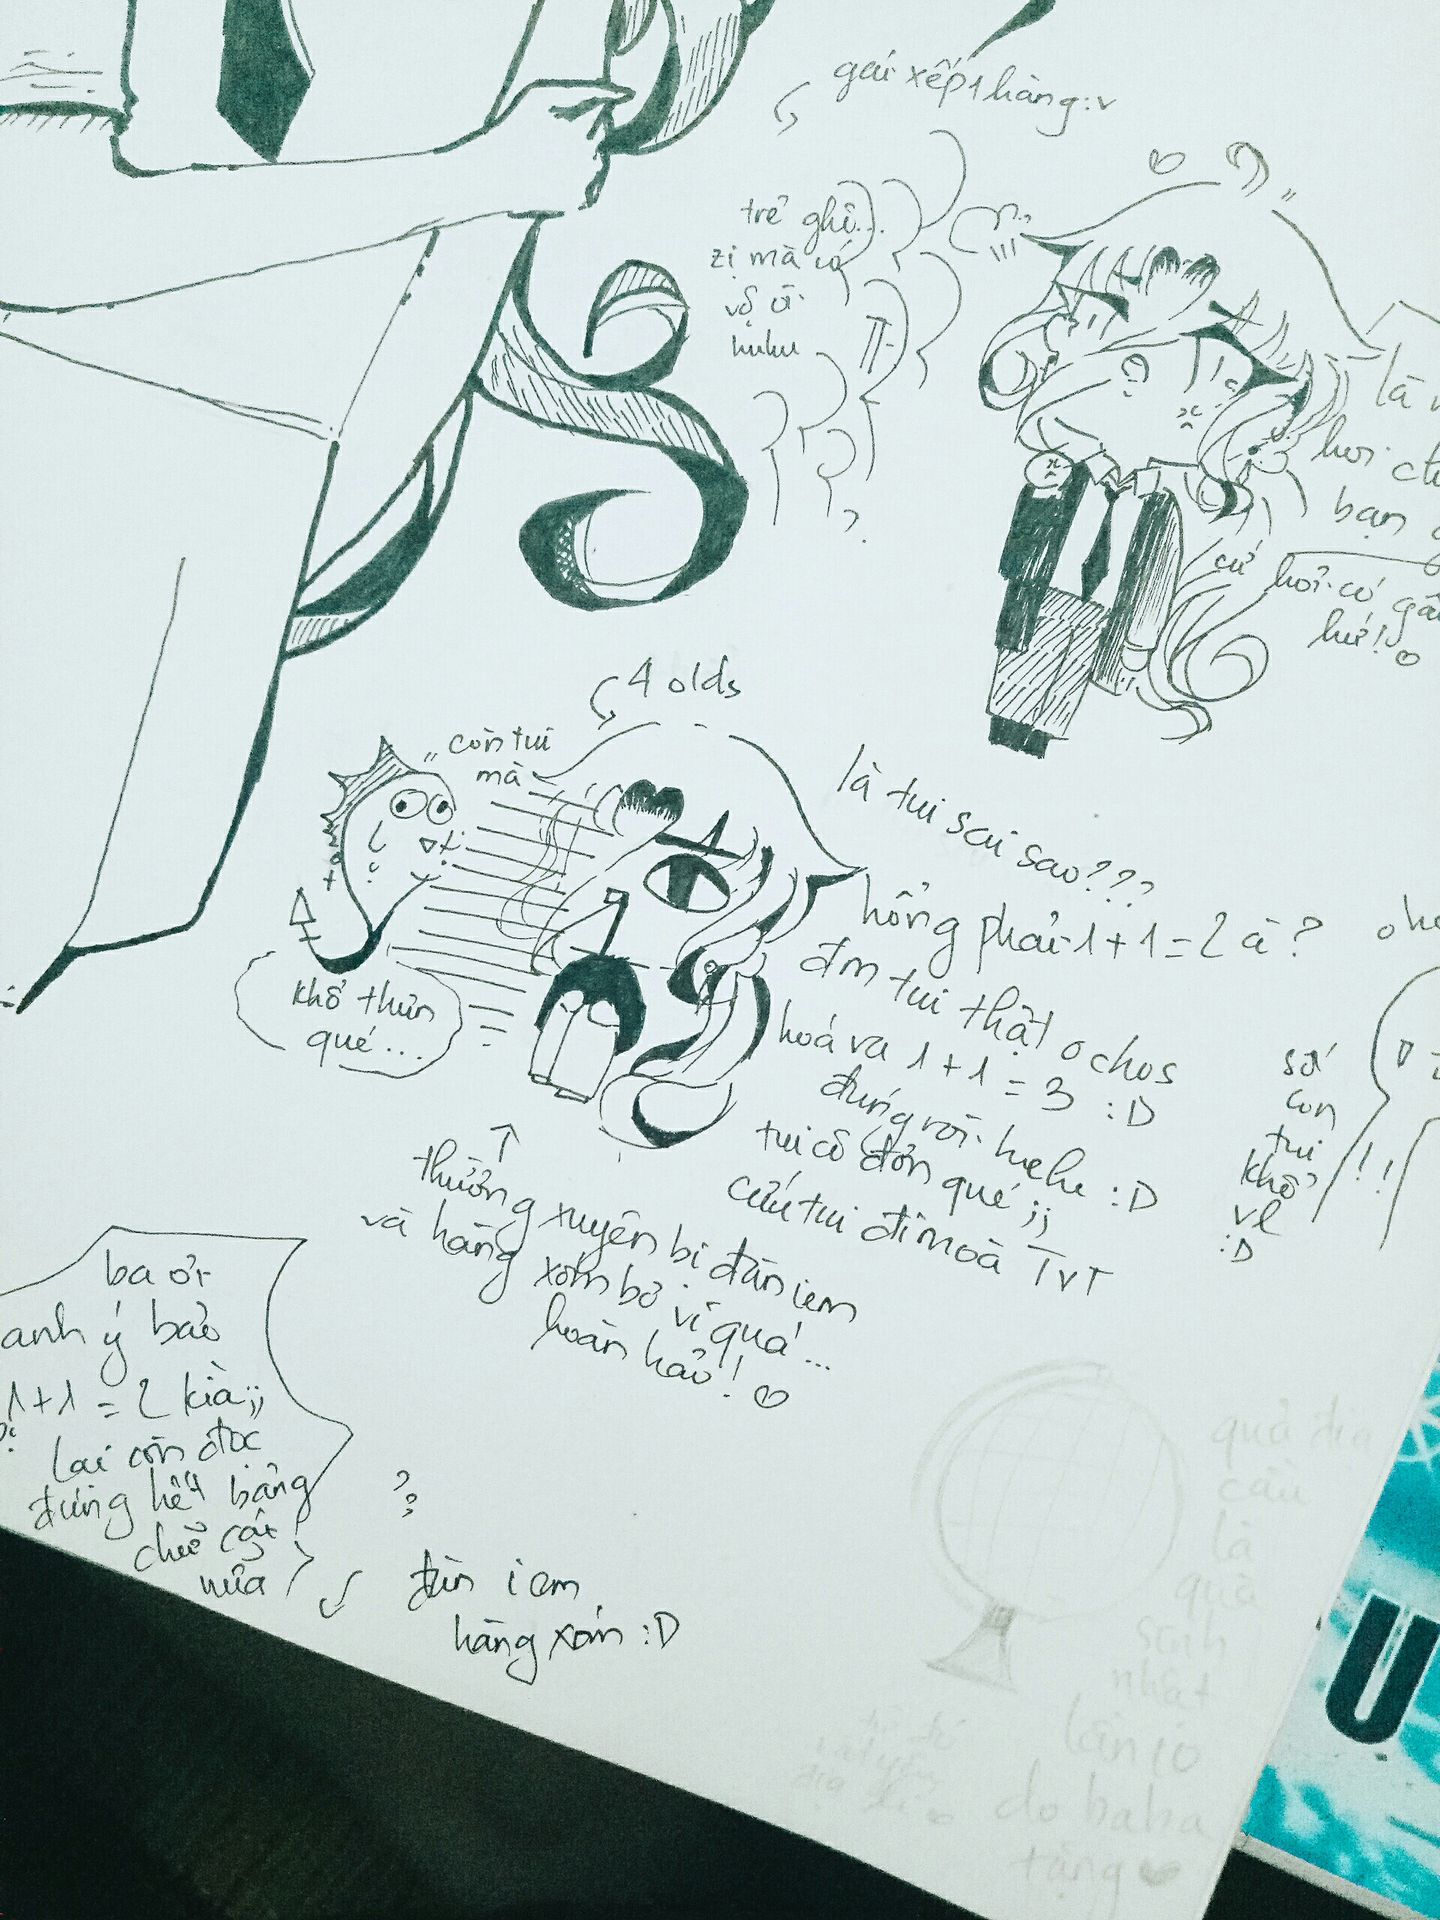 gái xếp 1 hàng :v
trẻ ghê...
zị mà có
vợ ùi
huhu
là
hơi
bạn
cứ hỏi có
hứ!
4 olds
còn tui
mà
là tui sai sao???
hổng phải 1+1=2 à?
đm tui thật ochos
hoá ra 1+1=3 :D
đúng rồi hehe :D
tui cô đơn qué ;;
cứu tui đi moà TvT
khổ thưn
qué...
thường xuyên bị đàn iem
và hàng xóm bơ vì quá...
hoàn hảo!
sứ
con
tui
khổ
vl
:D
ba ơi
anh ý bảo
1+1=2 kìa;;
lại còn đọc
đúng hết bảng
chữ cái
nữa
??
đàn iem
hàng xóm :D
quả địa
cầu
là
quà
sinh
nhật
lần 10
do baba
tặng
U